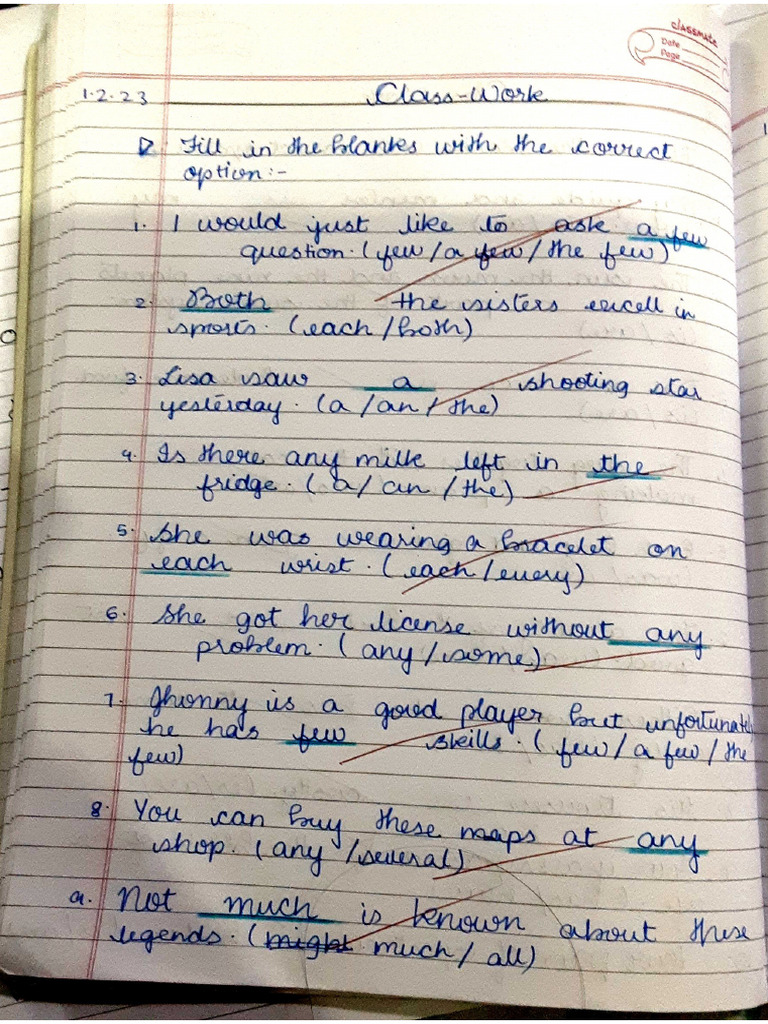 classmate
Date
Page
1.2.23 Class-Work
Fill in the blankes with the correct
option:-
1. I would just like to ask a few
question. (few/a few/the few)
2. Both the sisters excell in
sports. (each/both)
3. Lisa saw a shooting star
yesterday. (a/an/the)
4. Is there any milk left in the
fridge. (a/an/the)
5. She was wearing a bracelet on
each wrist. (each/every)
6. She got her license without any
problem. (any/some)
7. Jhonny is a good player but unfortunately
he has few skills. (few/a few/the
few)
8. You can buy these maps at any
shop. (any/several)
9. Not much is known about these
legends. (might much/all)